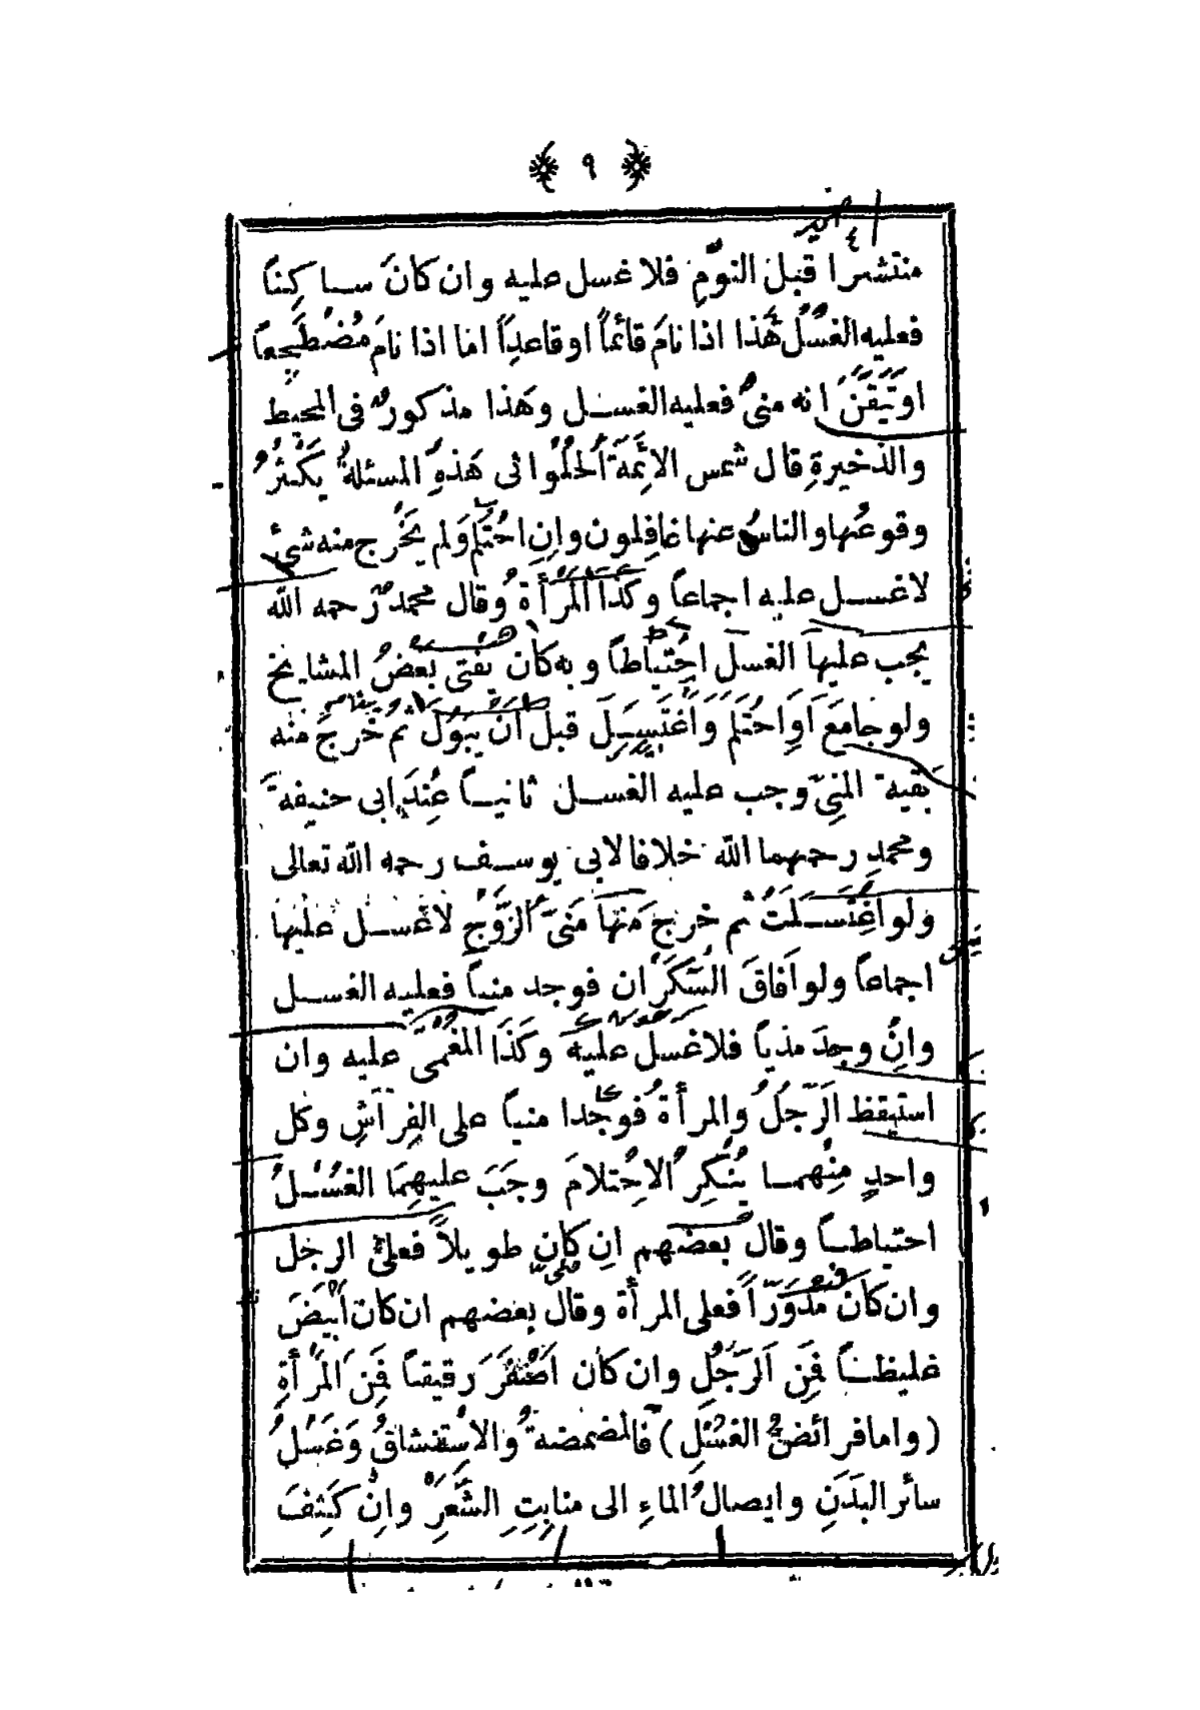 ﴿ ٩ ﴾
منتشرا قبل النومِ فلا غسل عليه وان كانَ ساكِناً
فعليه الغسلُ هَذا اذا نامَ قائماً اوقاعدِاً اما اذا نامَ مُضْطَجِعاً
اوتَيَقَّنَ انه منىٌ فعليه الغسل وهَذا مذكورٌ فى المحيط
والذخيرةِ قال شمس الائِمَةَ الحَلُوانى هَذهِ المسئلةُ يَكْثُرُ
وقوعُها والناسُ عنها غافِلون واِنِ احْتَلَمَ وَلم يَخْرُج منه شئٌ
لاغسل عليه اجماعاً وكَذَا المَرْأَةُ وقال محمدٌ رحمه الله
يجب عليها الغسلَ احْتِياطاً وبه كان يُفْتى بَعْضُ المشايخ
ولوجامَعَ اَوِ احْتَلَمَ وَاَغْتَسَلَ قبلَ اَنْ يَبُولَ ثم خَرجَ منه
بَقيةُ المنِىّ وجب عليه الغسل ثانياً عِنْدَ ابى حنيفةَ
ومحمدِ رحمهما الله خلافا لابى يوسف رحمه الله تعالى
ولو اغْتَسَلَتْ ثم خرجَ مَنها مَنىّ الزَّوْجِ لاغسل عليها
اجماعاً ولو اَفاقَ السَّكْرَان فوجد منياً فعليه الغسل
واِنْ وجدَ مذياً فلاغسل عليه وكَذَا المُغْمَى عليه وان
استيقظ الَرّجُلُ والمرأةُ فوجدا منياً على الفِرَاشِ وكل
واحدٍ مِنْهما يُنْكِرُ الاحْتلامَ وجَبَ عليهِمَا الغُسْلُ
احتياطاً وقال بعضهم اِن كان طويلاً فعلى الرجل
وان كَانَ مُدَوَّرَاً فعلى المرأة وقال بعضهم ان كان اَبْيَضَ
غليظاً فَمِنَ الَرّجُلِ وان كان اَصْفَرَ رقيقاً فَمِنَ المَرْأةِ
(واما فرائضُ الغسْلِ) فالمضمضةُ والاسْتنشاقُ وَغَسْلُ
سائر البَدَنِ وايصالُ الماءِ الى منابِتِ الشَّعَرِ واِنْ كَثِفَ